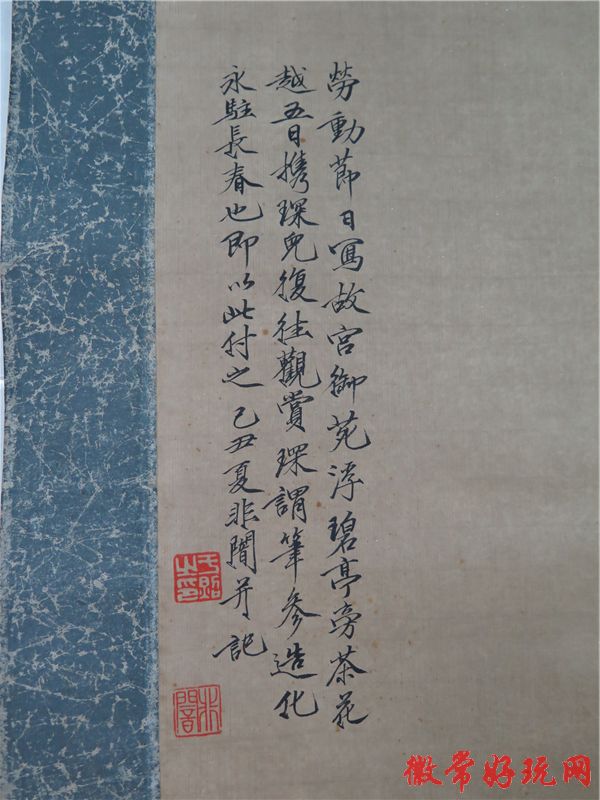 勞動節日寫故宮御苑浮碧亭旁茶花
越五日携琛兒復往觀賞琛謂筆參造化
永駐長春也即以此付之 己丑夏非闇并記
于照之印
非闇
徽常好玩网